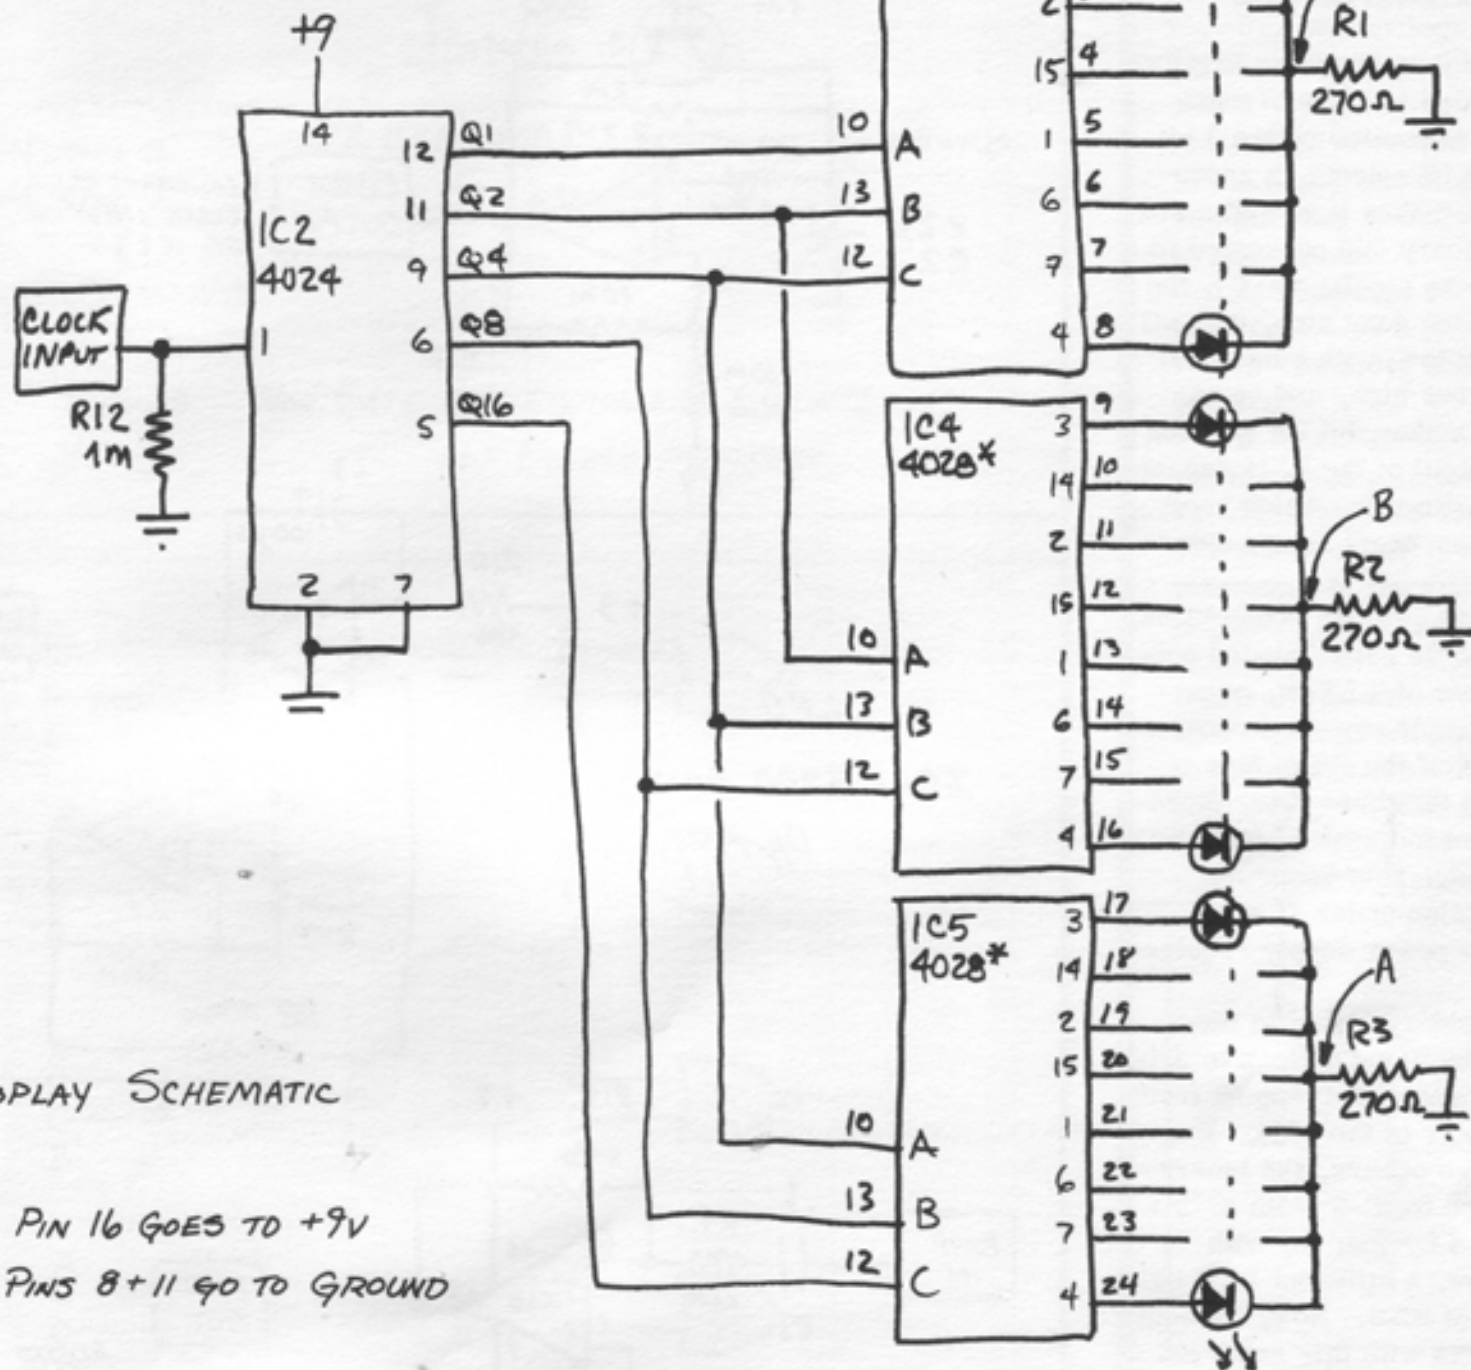 +9
14
12 Q1
11 Q2
9 Q4
6 Q8
5 Q16
IC2
4024
1
2 7
CLOCK
INPUT
R12
1M
10 A
13 B
12 C
2
15 4
1 5
6 6
7 7
4 8
R1
270Ω
IC4
4028*
10 A
13 B
12 C
3 9
14 10
2 11
15 12
1 13
6 14
7 15
4 16
B
R2
270Ω
IC5
4028*
10 A
13 B
12 C
3 17
14 18
2 19
15 20
1 21
6 22
7 23
4 24
A
R3
270Ω
SPLAY SCHEMATIC
PIN 16 GOES TO +9V
PINS 8+11 GO TO GROUND